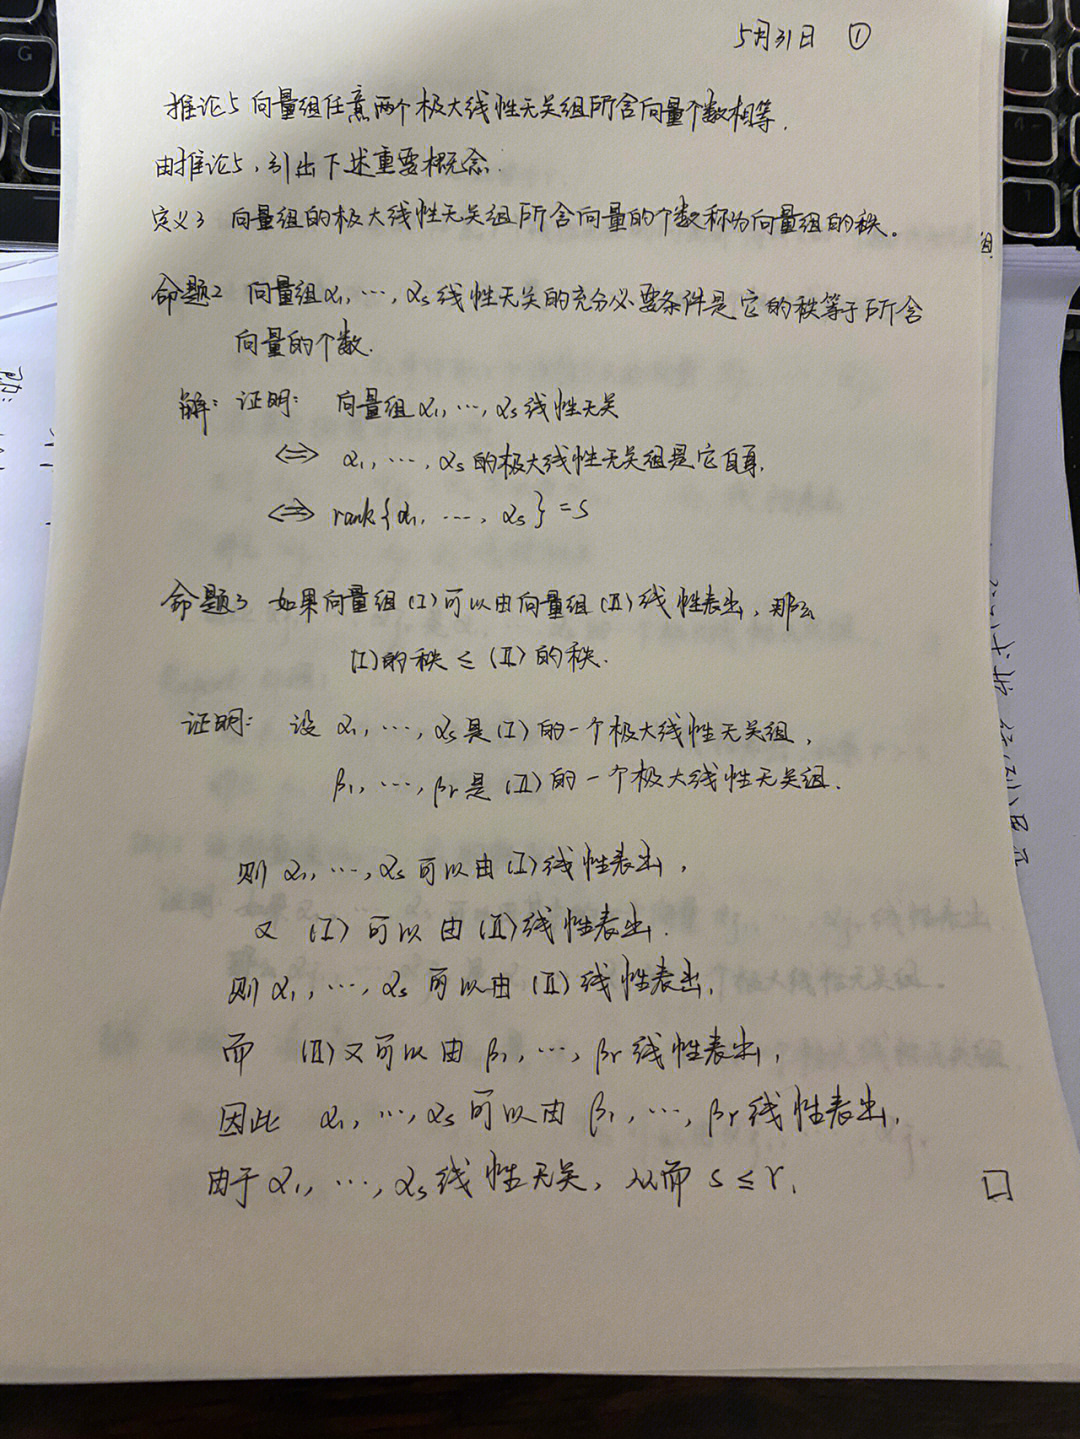 5月31日 ①
推论5 向量组任意两个极大线性无关组所含向量个数相等.
由推论5,引出下述重要概念.
定义3 向量组的极大线性无关组所含向量的个数称为向量组的秩。
命题2 向量组α₁, ⋯, αs线性无关的充分必要条件是它的秩等于所含
向量的个数.
解: 证明: 向量组α₁, ⋯, αs线性无关
⟺ α₁, ⋯, αs的极大线性无关组是它自身.
⟺ rank{α₁, ⋯, αs}=s
命题3 如果向量组(I)可以由向量组(II)线性表出, 那么
(I)的秩 ≤ (II)的秩.
证明: 设 α₁, ⋯, αs是(I)的一个极大线性无关组,
β₁, ⋯, βr是(II)的一个极大线性无关组.
则 α₁, ⋯, αs可以由(I)线性表出,
又 (I)可以由(II)线性表出.
则α₁, ⋯, αs 可以由(II)线性表出,
而 (II)又可以由β₁, ⋯, βr线性表出,
因此 α₁, ⋯, αs可以由β₁, ⋯, βr线性表出,
由于α₁, ⋯, αs线性无关, 从而 s≤r. □